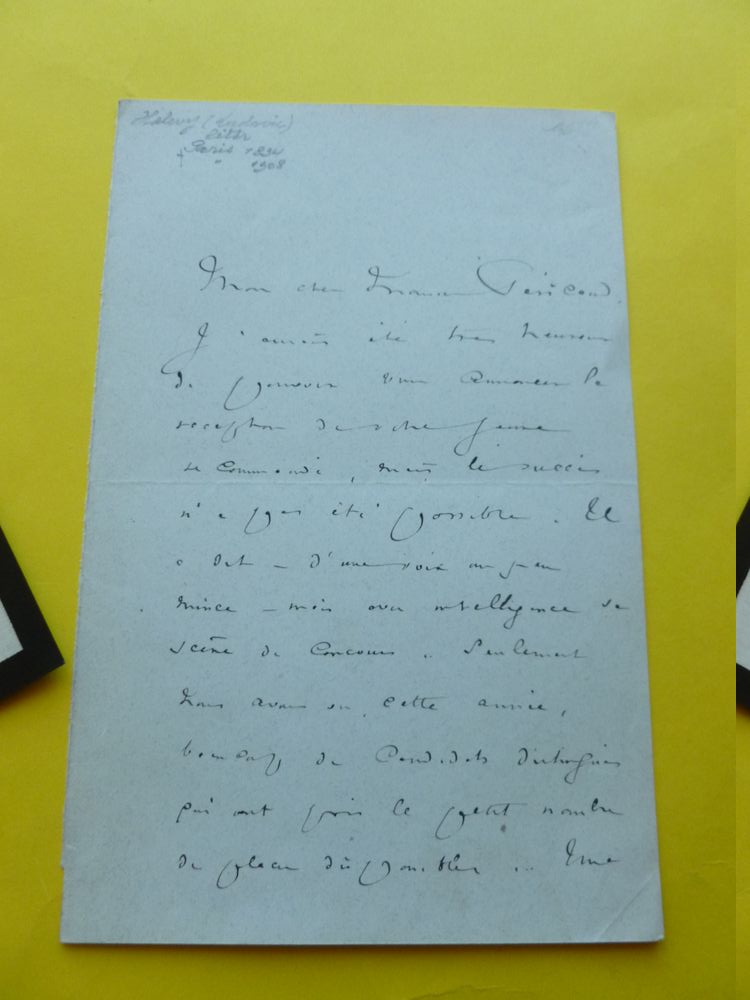 Halévy (Ludovic)
littr
Paris 1834
" 1908
Mon cher Monsieur Péricaud,
J'aurais été très heureux
de pouvoir vous annoncer la
reception de votre jeune
recommandé, mais le succès
n'a pas été possible. Il
a dit - d'une voix un peu
mince - mais avec intelligence sa
scène de concours .. Seulement
nous avons eu, cette année,
beaucoup de candidats distingués
qui ont pris le petit nombre
de places disponibles ...